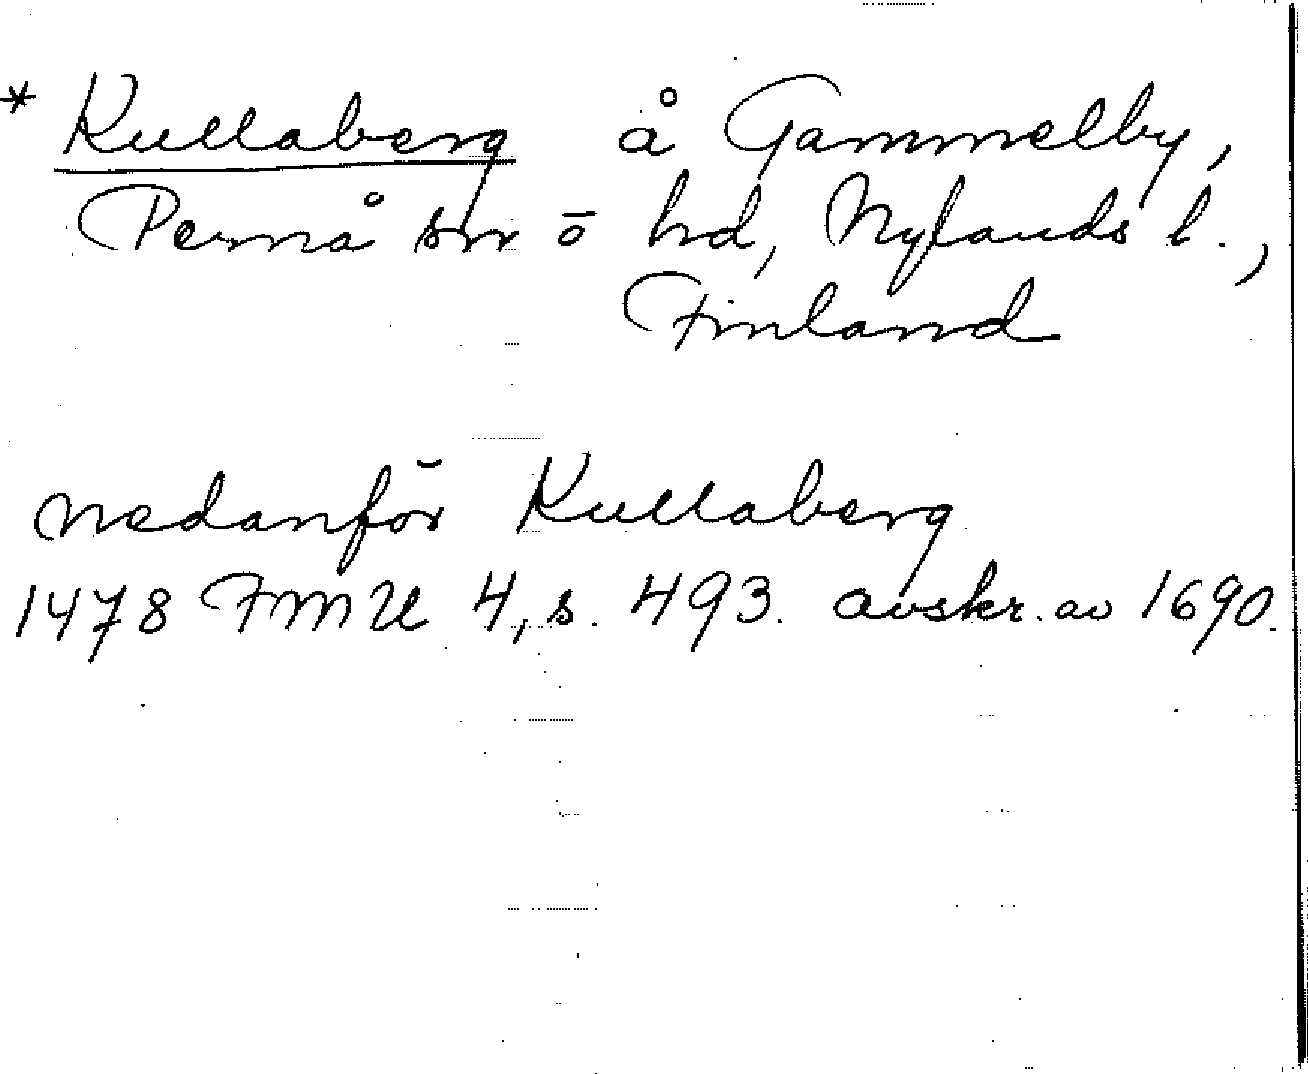 * Kullaberg å Gammelby,
Pernå sn o hd, Nylands l.,
Finland
nedanför Kullaberg
1478 FMU 4, s. 493. avskr. av 1690.